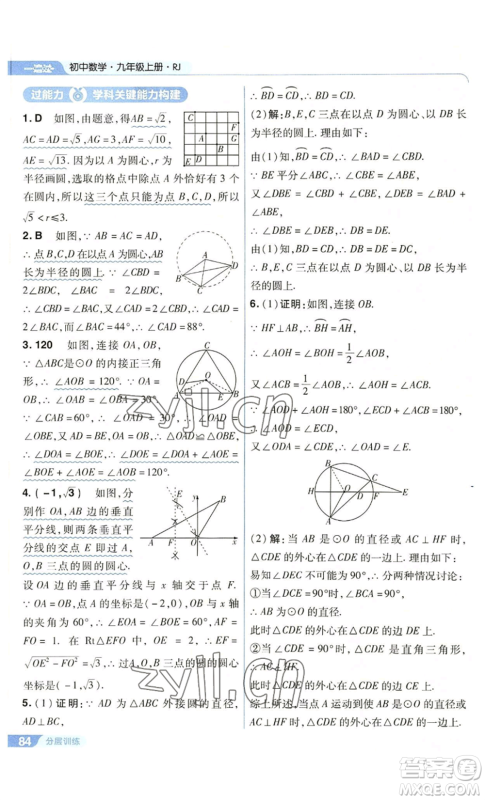 一遍过 初中数学·九年级上册·RJ
过能力 学科关键能力构建
1. D　如图,易得AB=√2,
AC=AD=√5,AG=3,AF=√10,
AE=√13. 因为以点A为圆心,r为
半径画圆,选取的格点中除点A外恰好有3个
在圆内,所以这三个点只能为点B,C,D,所以
√5<r≤3.
2. B　如图,∵AB=AC=AD,
∴点B,C,D三点在以点A为圆心,AB
长为半径的圆上. ∵∠CBD=
2∠BDC,∴∠CAD=2∠BAC.
∵∠BAC=44°,∴∠CAD=88°.
3. 120　如图,连接OB. ∵
△ABC是⊙O的内接正三角
形,∴∠AOB=120°. ∵OA=
OB,∴∠OAB=∠OBA=30°.
∵∠CAB=60°,∴∠OAD=30°,
∴∠OAD=∠OBE. ∵AD=BE,∴△OAD≌
△OBE,∴∠DOA=∠BOE,∴∠DOE=
∠DOA+∠AOE=∠AOB=120°.
4. (-1,√3)　如图,分
别作OA,AB边的垂直
平分线,则两垂直平分
线的交点E即为
△OAB的外心.
设OA边的垂直平分线与x轴交于点
F. ∵点A的坐标是(-2,0),OB与x
轴的夹角为60°,∴∠EOF=60°,AF=
FO=1. 在Rt△EFO中,EF=
√OE²-FO²=√3,∴△OAB外心的
坐标是(-1,√3).
5. (1)证明:∵AD为外接圆的直径,
AD⊥BC,
∴BD=CD,∴BD=CD.
(2)解:B,E,C三点在以点D为圆心,以DB长
为半径的圆上. 理由如下:
由(1)知,BD=CD,∴∠BAD=∠CBD.
∵BE平分∠ABC,∴∠CBE=∠ABE,
又∠DBE=∠CBD+∠CBE,∠DEB=∠BAD+
∠ABE,
∴∠DBE=∠DEB,∴DB=DE.
由(1)知,BD=CD,∴DB=DE=DC,
∴B,E,C三点在以点D为圆心,以DB长为
半径的圆上.
6. (1)证明:如图,连接OB.
∵HF⊥AB,∴BH=AH,
∴∠BOH=∠AOH=1/2∠AOB.
又∠ACB=1/2∠AOB,∴∠AOH=∠ACB.
∵∠AOD+∠AOH=180°,∠ECD+∠ACB=
180°,∴∠OAD=∠ECD.
(2)解:当AB是⊙O的直径或AC⊥HF时,
△CDE的外心在△CDE的一边上. 理由如下:
易知∠DEC不可能是90°,分两种情况讨论:
①当AB是⊙O的直径时,∠ACB=∠DCE=90°,
此时△CDE的外心在△CDE的边DE上.
②当AC⊥HF时,∠CDE=90°,
∴△CDE是直角三角形,
此时△CDE的外心在△CDE的边CE上.
综上所述,当AB是⊙O的直径或AC⊥HF时,
△CDE的外心在△CDE的一边上.
84 分层训练
zyjl.cn
zyjl.cn
答案圈
MXQE.COM